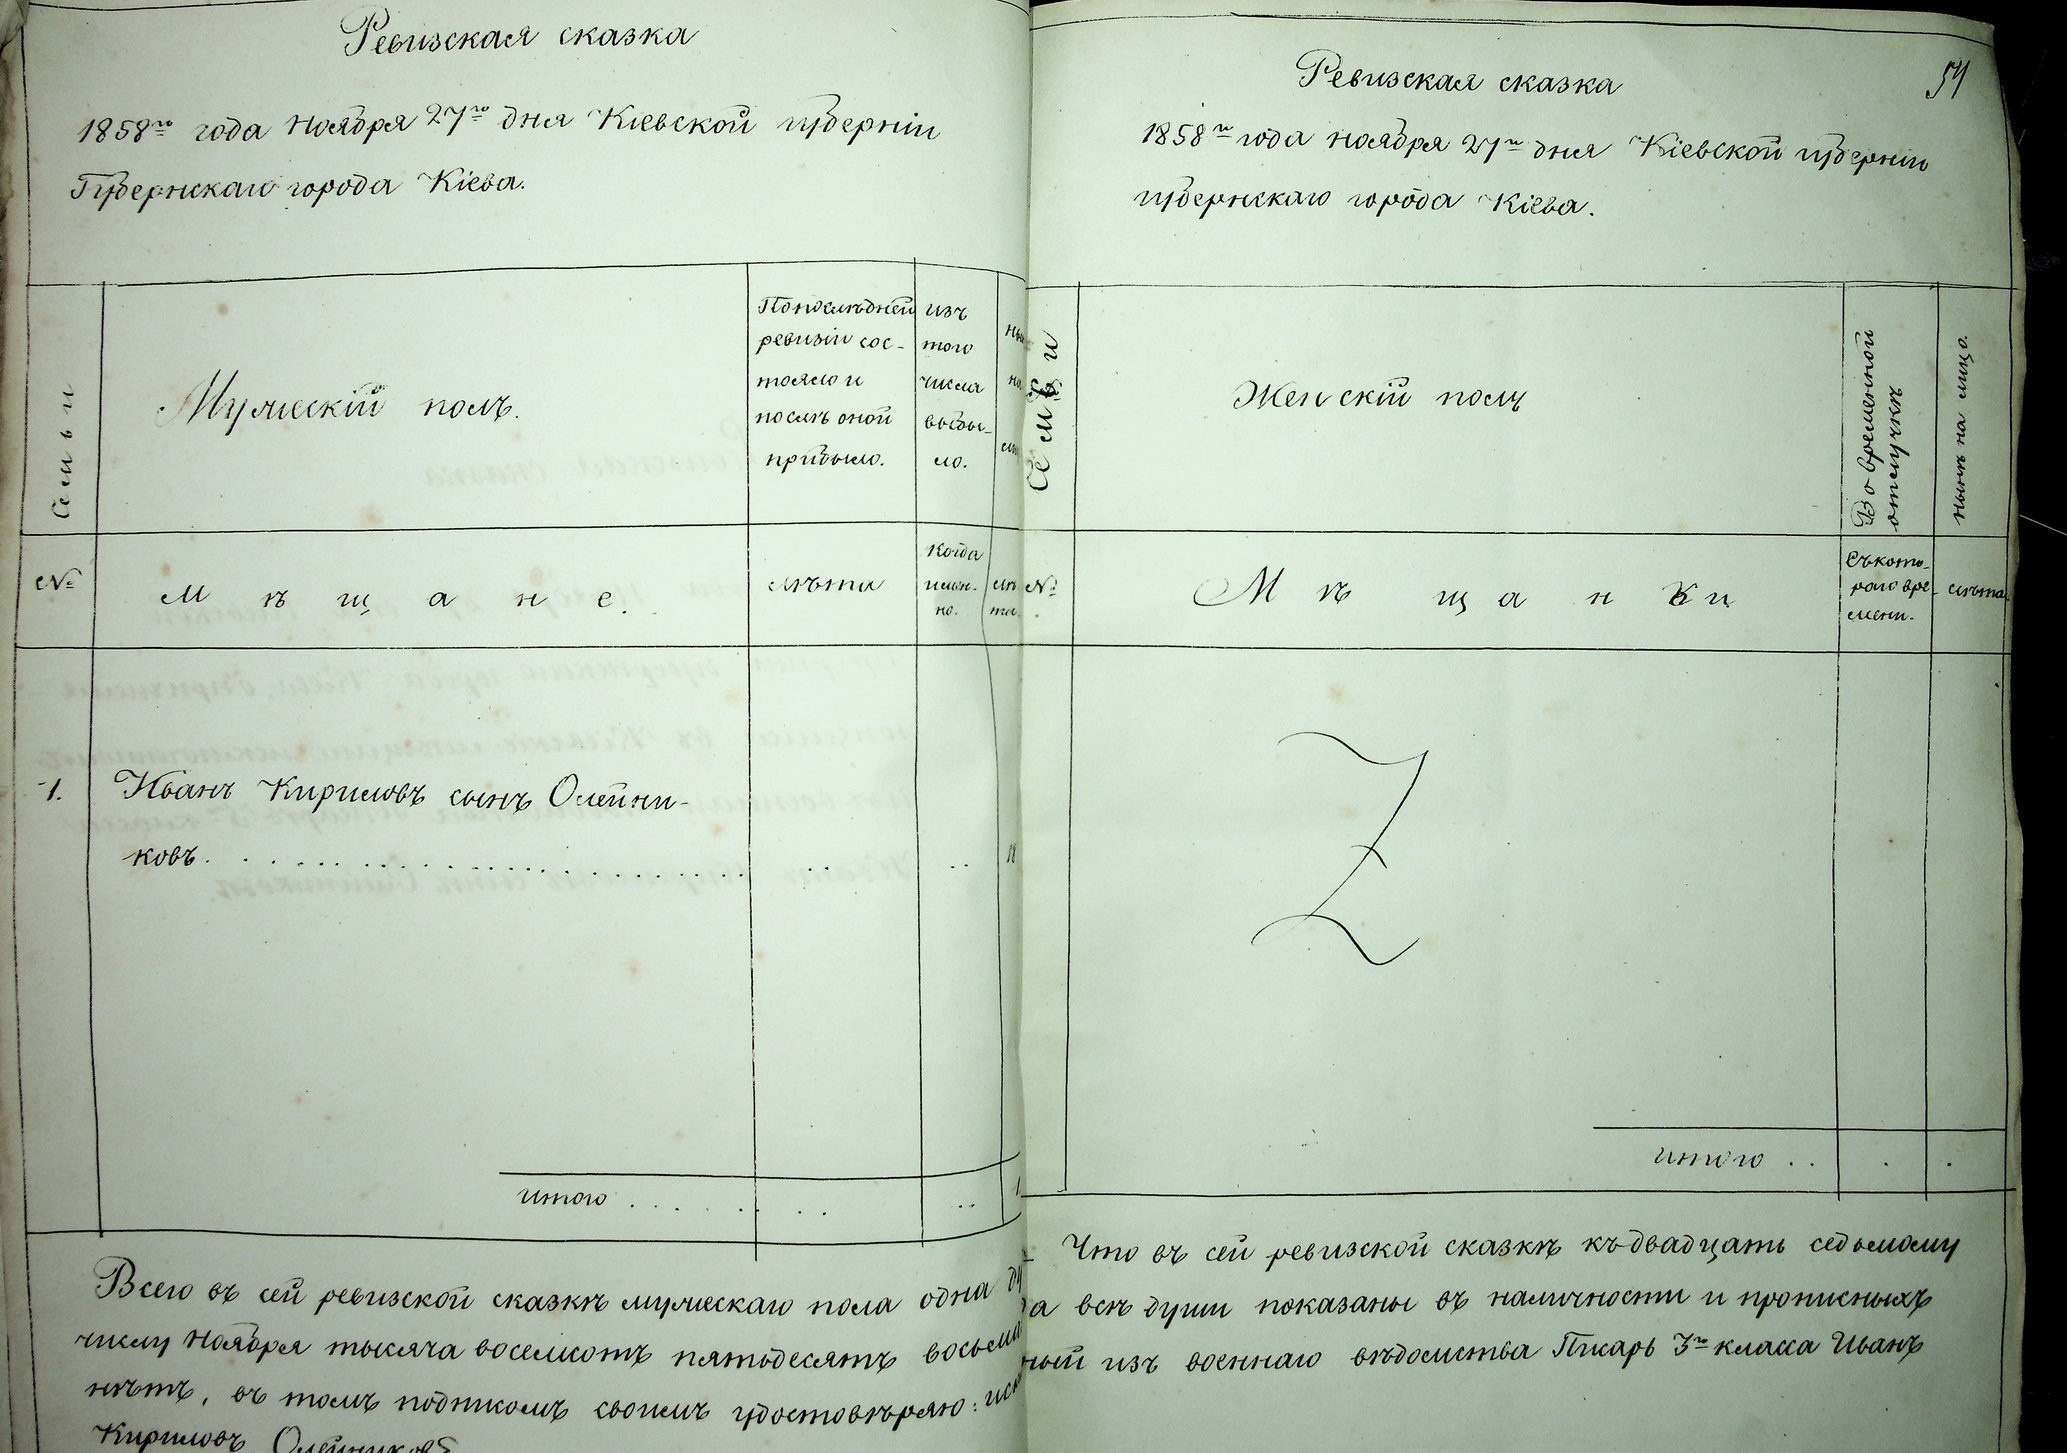 Ревизская сказка
1858го года Ноября 27го дня Кіевской губерніи
Губернскаго города Кіева.
Семьи
Мужескій полъ.
По последней
ревизіи сос-
тояло и
послѣ оной
прибыло.
изъ
того
числа
выбы-
ло.
№
Мѣщане.
лѣта
когда
имен-
но.
лѣ
та.
1.
Иванъ Кириловъ сынъ Олейни-
ковъ.
18
итого
1
Всего въ сей ревизской сказкѣ мужескаго пола одна
числу Ноября тысяча восемсотъ пятьдесятъ
нѣтъ, въ томъ подпискомъ своимъ удостовѣряю:
Кириловъ Олейниковъ
Ревизская сказка
54
1858го года ноября 27го дня Кіевской губерніи
губернскаго города Кіева.
Семьи
Женскій полъ
Во временной
отлучкѣ
нынѣ на лицо.
№
Мѣщанки
Съ кото-
раго вре-
мени.
лѣта.
итого
Что въ сей ревизской сказкѣ къ двадцать седьмому
всѣ души показаны въ наличности и прописныхъ
изъ военнаго вѣдомства Писарь 3го класса Иванъ